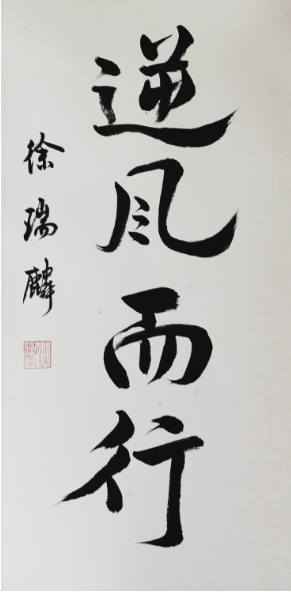 逆风而行
徐瑞麟